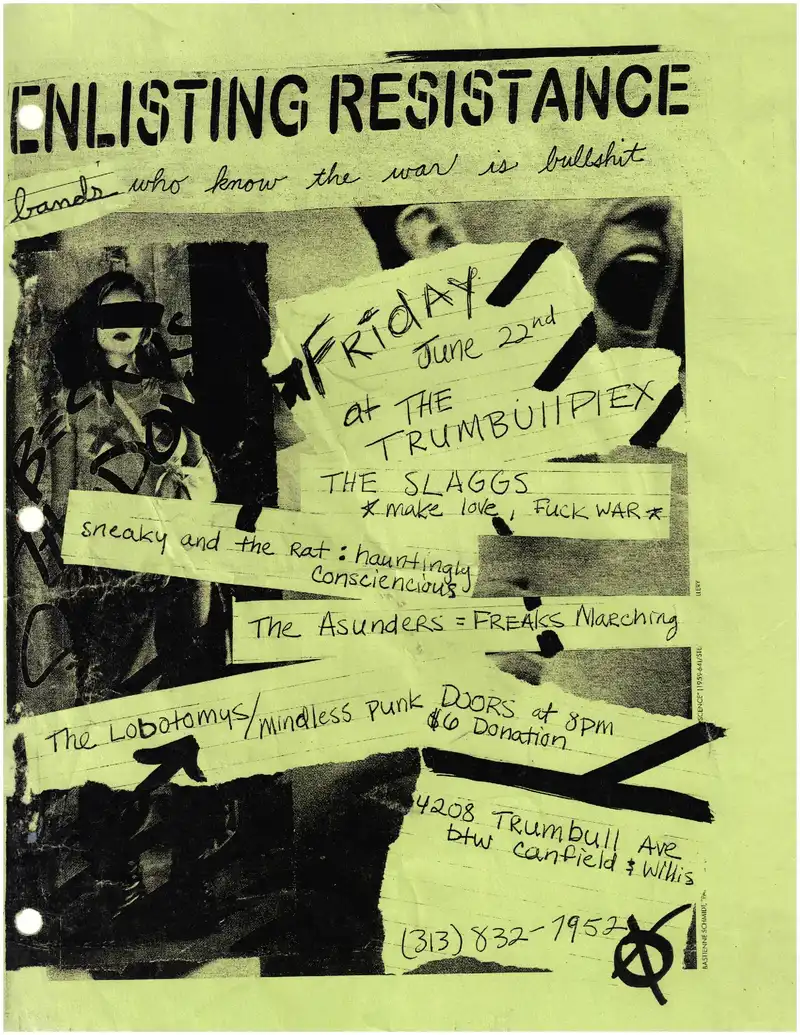 ENLISTING RESISTANCE
bands who know the war is bullshit
FRIDAY
June 22nd
at THE
TRUMBUllPlEX
THE SLAGGS
*make love, FUCK WAR*
sneaky and the Rat : hauntingly
consciencious
The Asunders = FREAKS Marching
The Lobotomys/mindless punk
DOORS at 8pm
$6 Donation
4208 TRUMBUll AVE
btw Canfield & Willis
(313) 832-7952
LLERY
SCIENCE" (1959-64)/STE
BASTIENNE SCHMIDT, "PA